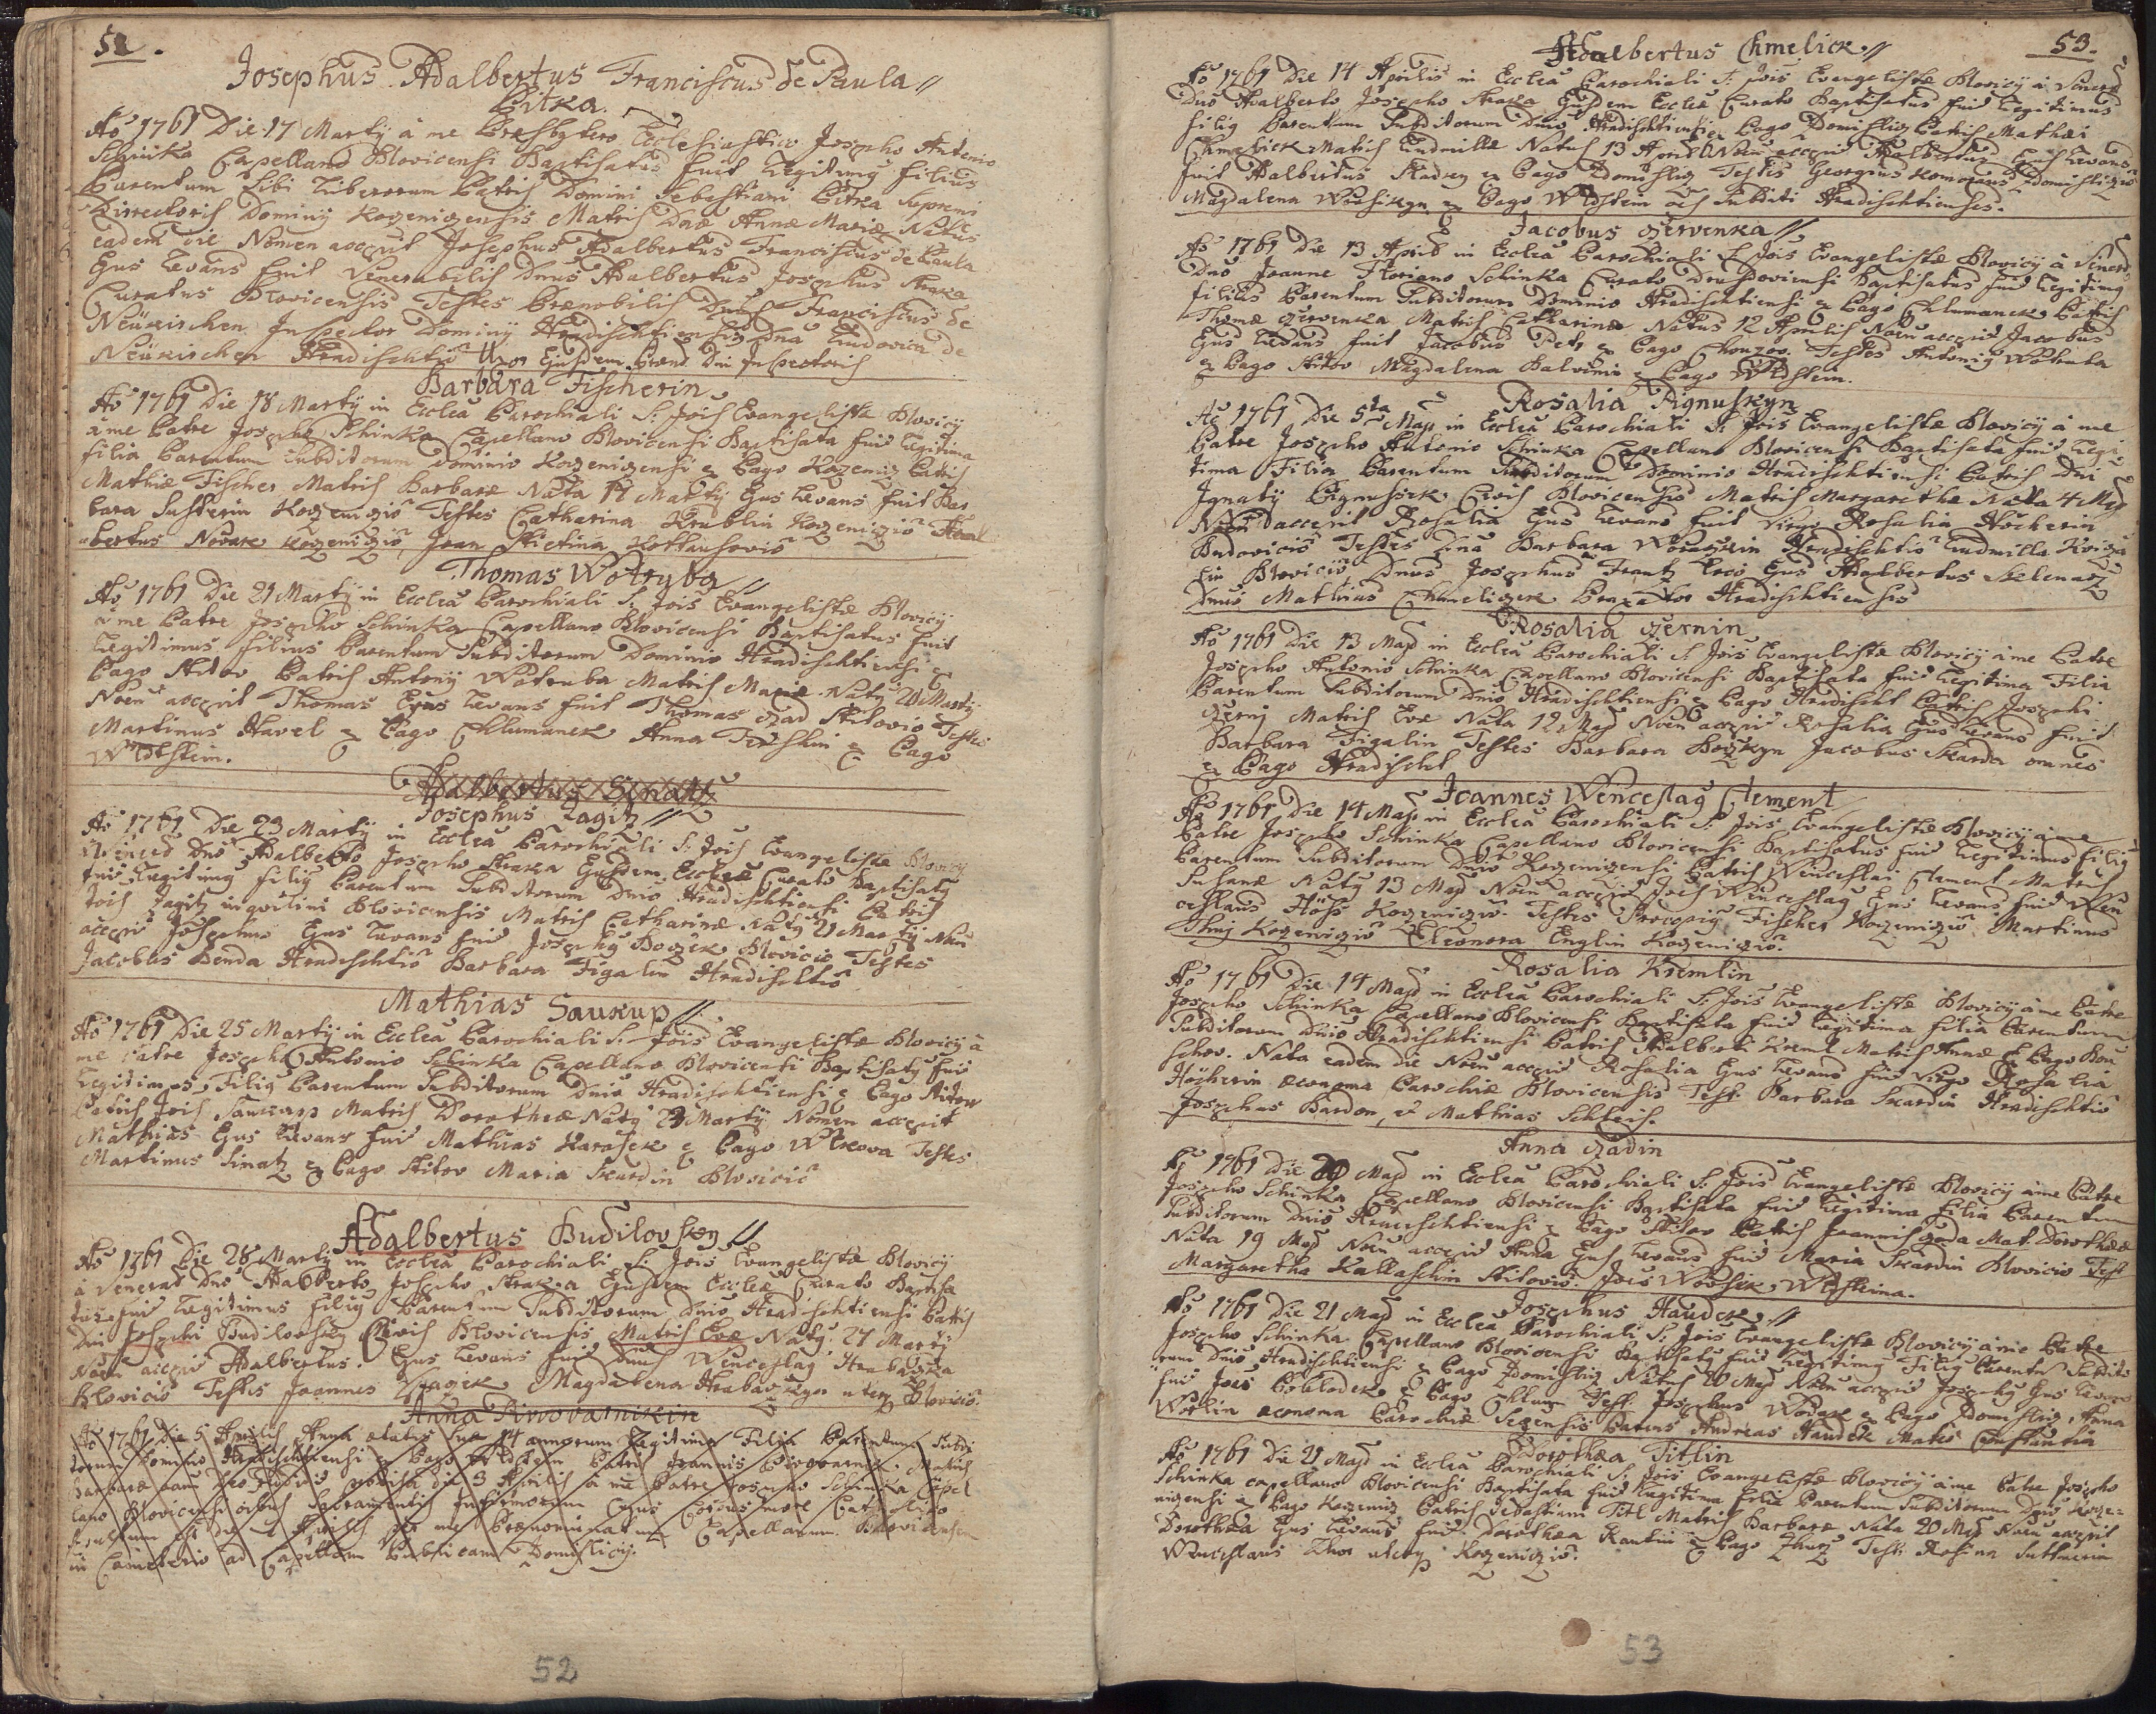 52.
Josephus Adalbertus Franciscus de Paula //
Pitka.
Aō 1761 Die 17 Martÿ à me Presbytero Ecclesiastico Josepho Antonio
Schinka Capellano Blovicensi Baptisatus fuit Legitimg filius
Parentum Sibi Liberorum Patris Domini Sebestiani Pitka Supremi
Dirrectoris Dominÿ Kozenizensis Matris Dnæ Annæ Mariæ Natus
eadem die Nomen accepit Josephus Adalbertus Franciscus de Paula
Ejus Levans fuit Venerabilis Dnus Adalbertus Josephus Straka
Curatus Blovicensis Testes Prænobilis Dnus Franciscus de
Neükirchen Inspector Dominÿ Hradischtiensis Dna Ludovica de
Neükirchen Hradischtiō Uxor Ejusdem Præno Dni Inspectoris
Barbara Fischerin
Aō 1761 Die 18 Martÿ in Ecclea Parochiali S: Jois Evangelistæ Blovicÿ
à me Patre Josepho Schinka Capellano Blovicensi Baptisata fuit Legitima
filia Parentum Subditorum Dominio Kozenizensi ex Pago Kozeniz Patris
Mathiæ Fischer Matris Barbaræ Nata 17 Martÿ Ejus Levans fuit Bar
bara Susterin Kozeniziō Testes Catharina Krublin Kozeniziō Adal
bertus Novak Kozeniziō, Joan Stictina Kottausoviō
Thomas Wotruba //
Aō 1761 Die 21 Martÿ in Ecclea Parochiali S: Jois Evangelistæ Blovicÿ
à me Patre Josepho Schinka Capellano Blovicensi Baptisatus fuit
Legitimus filius Parentum Subditorum Dominio Hradischtiensi ex
Pago Stitov Patris Antonÿ Wotruba Matris Mariæ Natg 20 Martÿ
Noen accepit Thomas Ejus Levans fuit Thomas czad Stitoviō Testes
Martinus Havel ex Pago Chlumanek Anna Ticshin ex Pago
Wildstein.
Adalbertus Sinatz
Josephus Zagitz //
Aō 1761 Die 23 Martÿ in Ecclea Parochiali S: Jois Evangelistæ Blovicÿ
à Vened Dno Adalberto Josepho Straka Ejusdem Eccleæ Curato Baptisatg
fuit Legitimg filig Parentum Subditorum Dnio Hradischtiensi Patris
Jois Zagitz inqvilini Blovicensis Matris Catharinæ Natg 21 Martÿ Noen
accepit Josephus Ejus Levans fuit Josephg Bozek Blovicio Testes
Jacobus Benda Hradischtiō Barbara Figalin Hradischtiō
Mathias Saukup //
Aō 1761 Die 25 Martÿ in Ecclea Parochiali S: Jois Evangelistæ Blovicÿ à
me Patre Josepho Antonio Schinka Capellano Blovicensi Baptisatg fuit
Legitimus Filig Parentum Subditorum Dnio Hradischtiensi ex Pago Stitov
Patris Jois Saukup Matris Dorotheæ Natg 23 Martÿ Nomen accepit
Mathias Ejus Levans fuit Mathias Karasek ex Pago Wlkova Testes
Martinus Sinatz ex Pago Stitov Maria Skardin Bloviciō
Adalbertus Budilovsky //
Aō 1761 Die 28 Martÿ in Ecclea Parochiali S: Jois Evangelistæ Blovicÿ
à Venerad Dno Adalberto Josepho Straka Ejusdem Eccleæ Curato Baptisa
tus fuit Legitimus filig Parentum Subditorum Dnio Hradischtiensi Patris
Dni Josephi Budilovsky Civis Blovicensis Matris Evæ Natg 27 Martÿ
Noen accepit Adalbertus. Ejus Levans fuit Dnus Wenceslag Hrabaczka
Bloviciō Testes Joannes Zagicek Magdalena Hrabaczkyn uterq Bloviciō.
Anna Pivovarnikin
Aō 1761 Die 5 Aprilis Anna ætatis suæ 14 annorum Legitima Filia Parentum Subdi
torum Dominio Hradischtiensi ex Pago Wildstein Patris Joannis Pivovarnik Matris
Barbaræ
lano Blovicensi omnibus Sacramentis Infirmorum Ejus Corpus more Catholico
per me Prænominatum Capellanum Blovicensem
in Cæmeterio ad Capellam Publicam Domislicÿ.
52
53.
Adalbertus Chmelick //
Aō 1761 Die 14 Aprilis in Ecclea Parochiali S: Jois Evangelistæ Blovicÿ à Venerd
Dno Adalberto Josepho Straka Ejusdem Eccleæ Curato Baptisatus fuit Legitimus
filig Parentum Subditorum Dnio Hradischtiensi ex Pago Domisliz Patris Mathæi
Chmelick Matris Ludmillæ Natus 13 Aprilis Noen accepit Adalbertus Ejus Levans
fuit Adalbertus Skadny ex Pago Zdomisliz Testes Georgius Komorauß Zdomisliziō
Magdalena Wousikyn ex Pago Wildstein oēs Subditi Hradischtienses.
Jacobus czervenka //
Aō 1761 Die 13 Aprilis in Ecclea Parochiali S: Jois Evangelistæ Blovicÿ à Venerd
Dno Joanne Floriano Schinka Curato Druzdoviensi Baptisatus fuit Legitimg
filius Parentum Subditorum Dominio Hradischtiensi ex Pago Chlumanek Patris
Thomæ czervenka Matris Catharinæ Natus 12 Aprilis Noen accepit Jacobus
Ejus Levans fuit Jacobus Petr ex Pago Chouzov. Testes Antonig Wotruba
ex Pago Stitov Magdalena Balvinin ex Pago Wildstein.
Rosalia Pignuskyn
Aō 1761 Die 5ta Maji in Ecclea Parochiali S: Jois Evangelistæ Blovicÿ à me
Patre Josepho Antonio Schinka Capellano Blovicensi Baptisata fuit Legi
tima Filia Parentum Subditorum Dominio Hradischtiensi Patris Dni
Ignatÿ Pignussek Civis Blovicensis Matris Margarethæ Nata 4 Maji
Noen accepit Rosalia Ejus Levans fuit Virgo Rosalia Höcherin
Budoviciō Testes Dna Barbara Woraczkin Hradischtiō Ludmilla Kviza
lin Bloviciō Dnus Josephus Frantz loco Ejus Adalbertus Sklenarz
Dnus Mathias Chmelizek Braxator Hradischtiensis
Rosalia czernin
Aō 1761 Die 13 Maji in Ecclea Parochiali S: Jois Evangelistæ Blovicÿ à me Patre
Josepho Antonio Schinka Capellano Blovicensi Baptisata fuit Legitima Filia
Parentum Subditorum Dnio Hradischtiensi ex Pago Hradischt Patris Josephi
czerny Matris Evæ Nata 12 Maji Noen accepit Rosalia Ejus Levans fuit
Barbara Figalin Testes Barbara Bozkyn Jacobus Skarda omnes
ex Pago Hradischt
Joannes Wenceslag Clement
Aō 1761 Die 14 Maji in Ecclea Parochiali S: Jois Evangelistæ Blovicÿ à me
Patre Josepho Schinka Capellano Blovicensi Baptisatus fuit Legitimus filig
Parentum Subditorum Dnio Kozenizensi Patris Wenceslai Clement Matris
Susanæ Natg 13 Maji Noen accepit Jois Wenceslag Ejus Levans fuit Wen
ceslaus Höfs Kozeniziō. Testes Procopig Fischer Kozeniziō Martinus
Kozeniziō Eleonora Englin Kozeniziō.
Rosalia Kremlin
Aō 1761 Die 14 Maji in Ecclea Parochiali S: Jois Evangelistæ Blovicÿ à me Patre
Josepho Schinka Capellano Blovicensi Baptisata fuit Legitima filia Parentum
Subditorum Dnio Hradischtiensi Patris Adalberti Kreml Matris Annæ ex Pago Hau
schov. Nata eadem die Noen accepit Rosalia Ejus Levans fuit Virgo Rosalia
Höcherin œconoma Parochiæ Blovicensis Test: Barbara Skardin Hradischtiō
Josephus Bardon, et Mathias Schleis.
Anna czadin
Aō 1761 Die 20 Maji in Ecclea Parochiali S: Jois Evangelistæ Blovicÿ à me Patre
Josepho Schinka Capellano Blovicensi Baptisata fuit Legitima filia Parentum
Subditorum Dnio Hradischtiensi ex Pago Stitov Patris Joannis czada Mat. Dorotheæ
Nata 19 Maji Noen accepit Anna Ejus Levans fuit Maria Skardin Bloviciō Test
Margaretha Kallaschin Stitoviō. Jois Wovsek Wildsteina.
Josephus Haudek //
Aō 1761 Die 21 Maji in Ecclea Parochiali S: Jois Evangelistæ Blovicÿ à me Patre
Josepho Schinka Capellano Blovicensi Baptisatg fuit Legitimg Filig Parentu Subdito
rum Dnio Hradischtiensi ex Pago Zdomisliz Natus 20 Maji Noen accepit Josephg Ejus Levans
fuit Jois Koblodek ex Pago Chlum Test. Josephus Wodak ex Pago Zdomisliz, Anna
Wotlin œconoma Parochiæ Sezensis Parens Andreas Haudek Mater Constantia
Dorothea Titlin
Aō 1761 Die 21 Maji in Ecclea Parochiali S: Jois Evangelistæ Blovicÿ à me Patre Josepho
Schinka capellano Blovicensi Baptisata fuit Legitima filia Parentum Subditorum Dnio Koze=
nizensi ex Pago Kozeniz Patris Sebastiani Titl Matris Barbaræ Nata 20 Maji Noen accepit
Dorothea Ejus Levans fuit Dorothea Rautin ex Pago Zhurz Test: Rosina Suttnerin
Wenceslaus Thor uterq Kozeniziō.
53